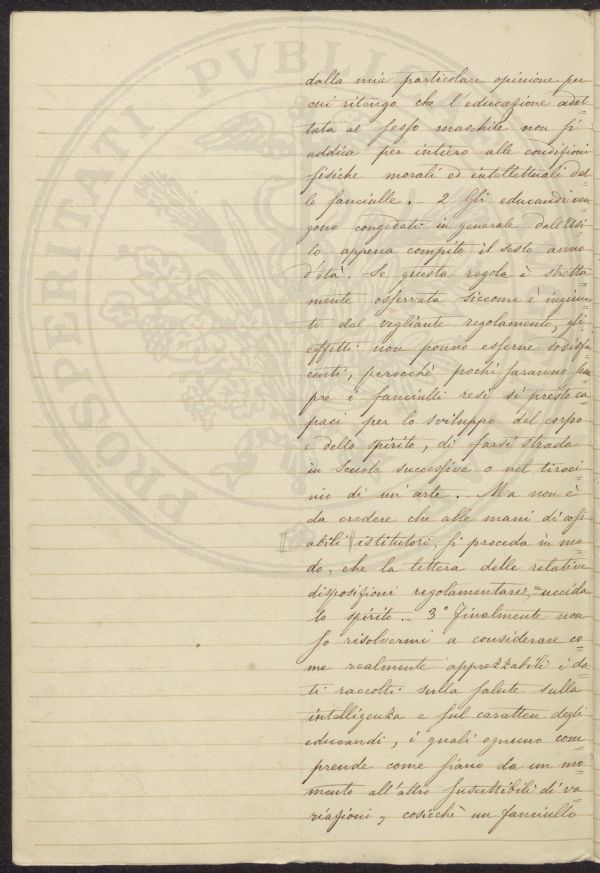 PROSPERITATI PVBLI
dalla mia particolare opinione per
cui ritengo che l'educazione adat=
tata al sesso maschile non si
addica per intiero alle condizioni
fisiche morali ed intellettuali del=
le fanciulle. _ 2 Gli educandi ven=
gono congedati in generale dall'Asi=
lo appena compito il sesto anno
d'età. Se questa regola è stretta=
mente osservata siccome è ingiun=
to dal vegliante regolamento, gli
effetti non ponno esserne sodisfa=
centi, perocchè pochi saranno sem=
pre i fanciulli resi sì presto ca=
paci per lo sviluppo del corpo
e dello spirito, di farsi strada
in scuole successive o nel tiroci=
nio di un'arte. _ Ma non è
da credere che alle mani di così
abili istitutori, si proceda in mo=
do, che la lettera delle relative
disposizioni regolamentarie, uccida
lo spirito. _ 3° Finalmente non
so risolvermi a considerare co=
me realmente apprezzabili i da=
ti raccolti sulla salute sulla
intelligenza e sul carattere degli
educandi, i quali ognuno com=
prende come siano da un mo=
mento all'altro suscettibili di va=
riazioni, cosicchè un fanciullo